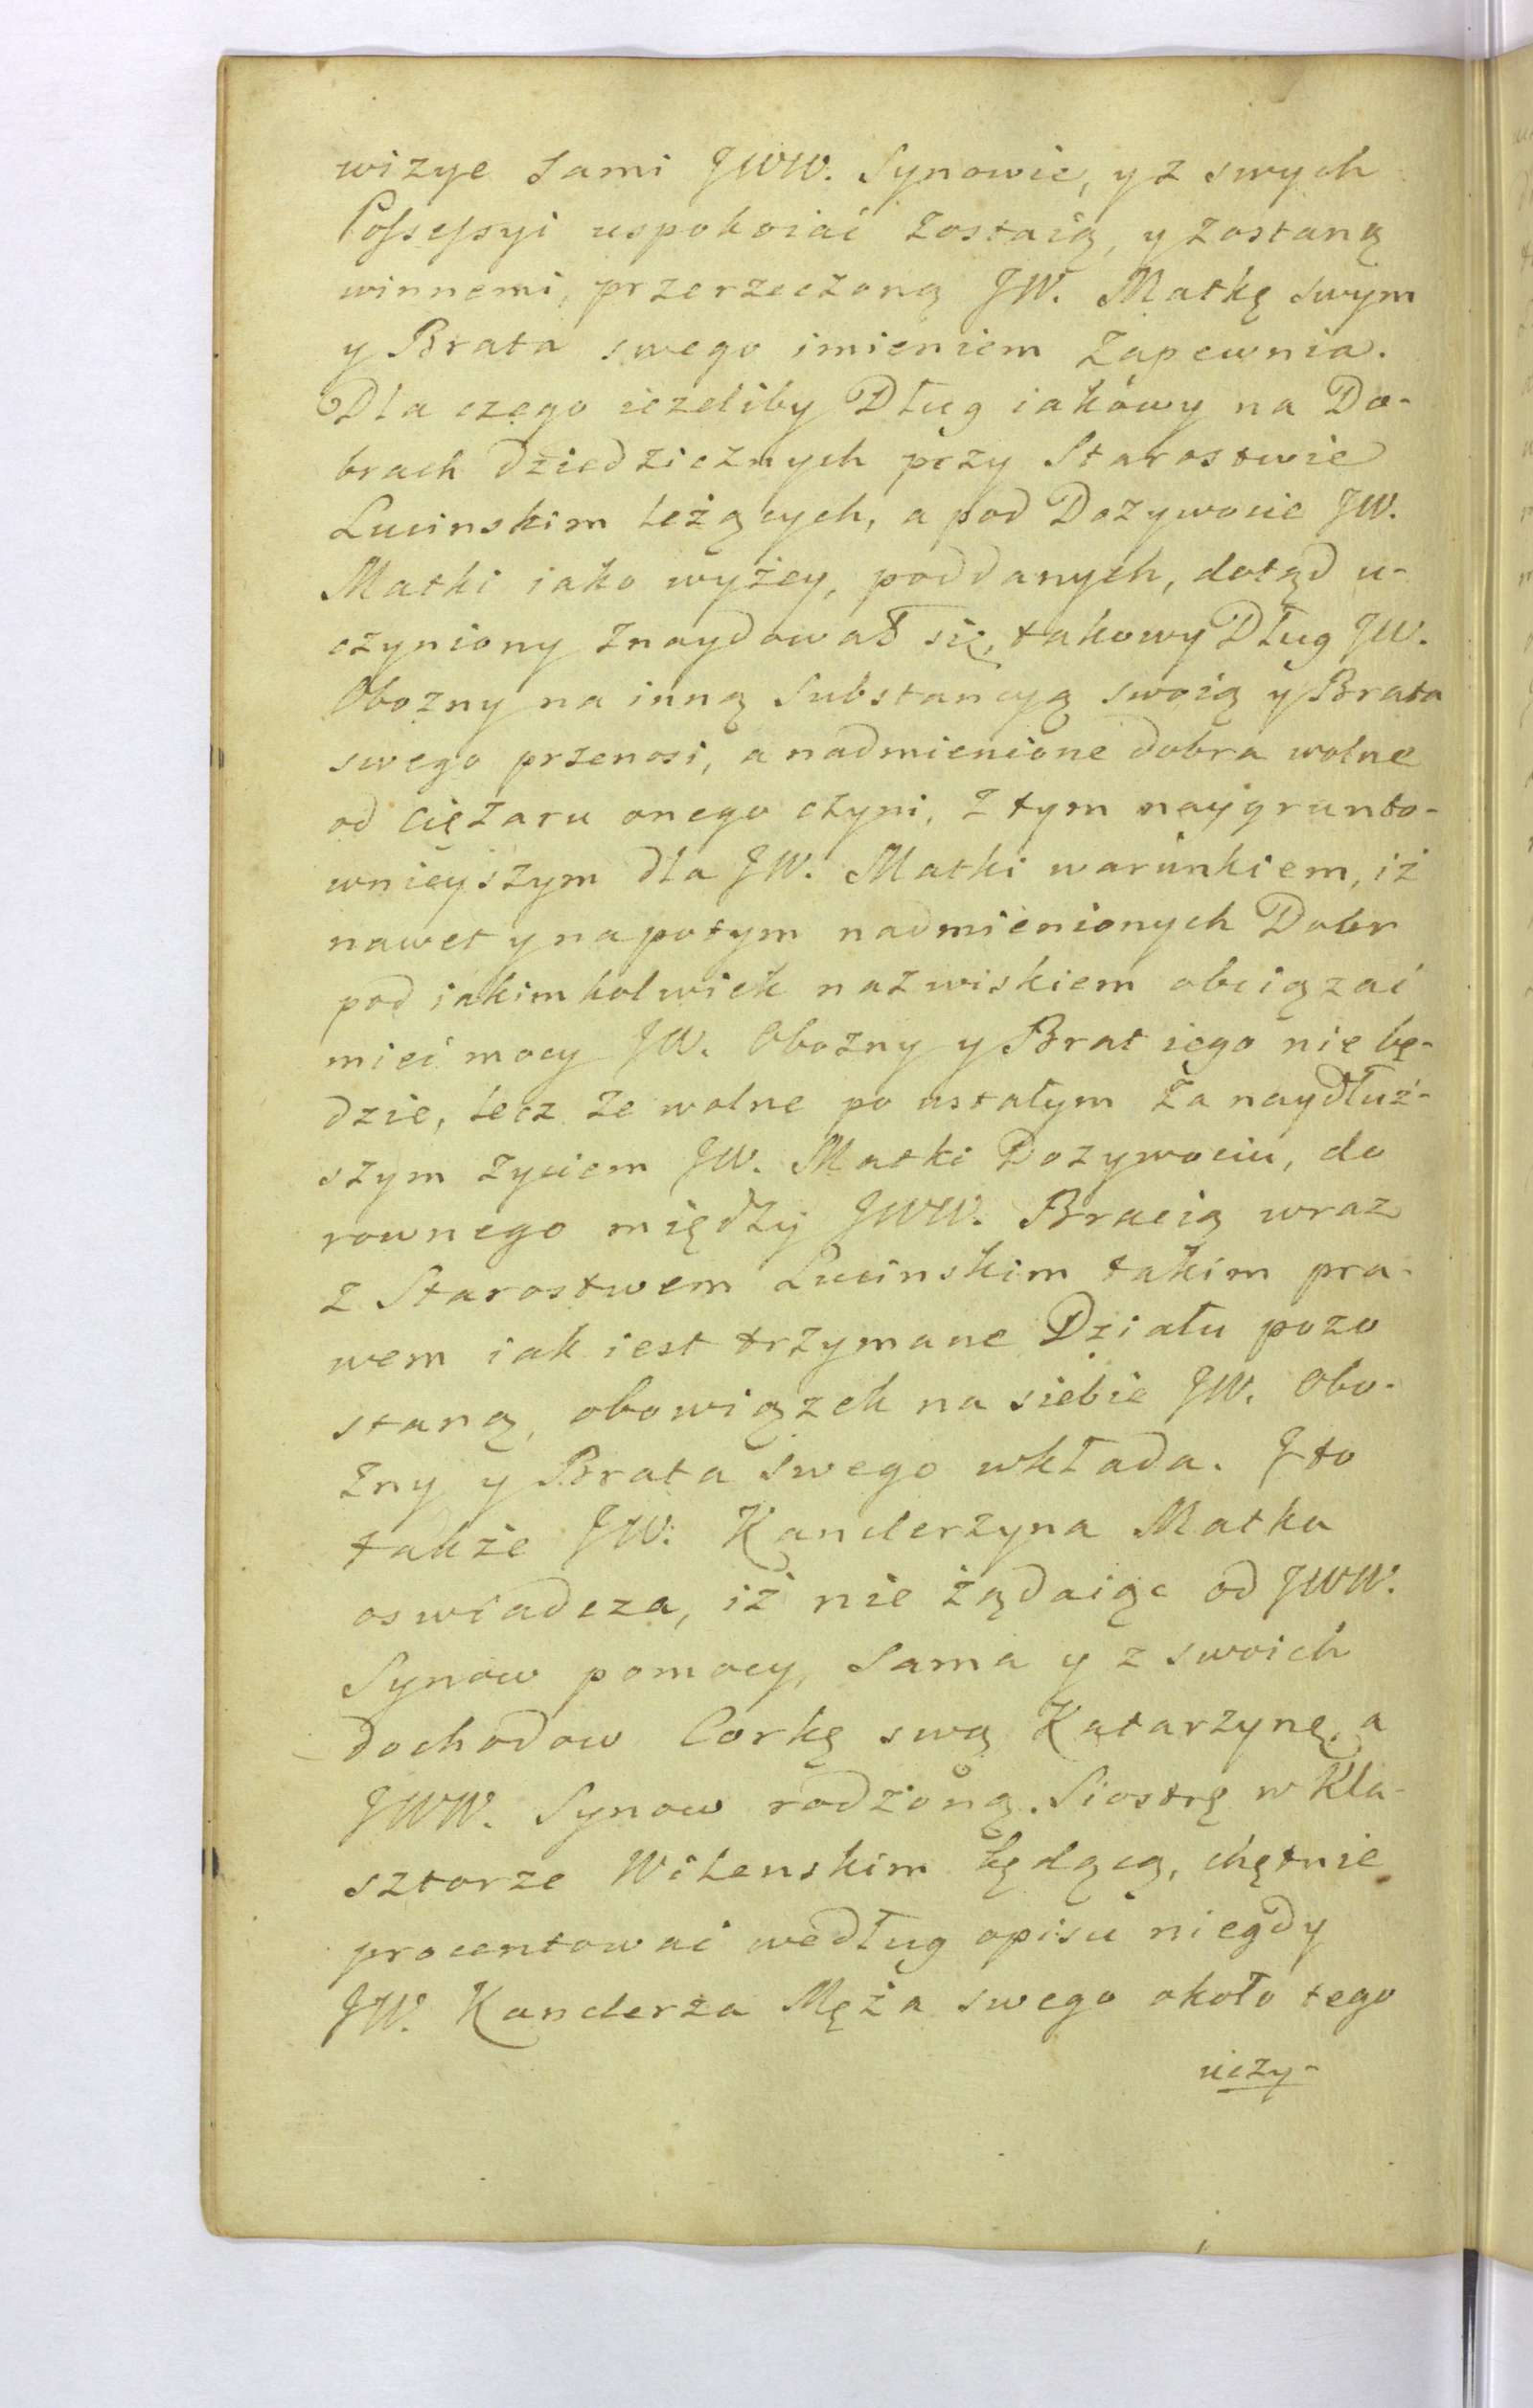 wizye sami JWW. Synowie, y z swych
Possessyi uspokoiać zostaią, y zostaną
winnemi, przerzeczoną JW. Matkę swym
y Brata swego imieniem zapewnia.
Dla czego ieżeliby Dług iakowy na Do-
brach dziedzicznych przy Starostwie
Lucinskim leżących, a pod Dozywocie JW.
Matki iako wyżey, poddanych, dotąd u-
czyniony znaydował się, takowy Dług JW.
Obozny na inną Substancyą swoią y Brata
swego przenosi, a nadmienione dobra wolne
od ciężaru onego czyni, z tym naygrunto-
wnieyszym dla JW. Matki warunkiem, iż
nawet y napotym nadmienionych Dobr
pod iakimkolwiek nazwiskiem obciązać
mieć mocy JW. Obozny y Brat iego nie bę-
dzie, lecz ze wolne po ustałym za naydłuż-
szym życiem JW. Matki Dozywociu, do
rownego między JWW. Bracią wraz
z Starostwem Lucinskim takim pra-
wem iak iest trzymane Działu pozo
staną, obowiązek na siebie JW. Obo-
zny y Brata swego wkłada. J to
także JW. Kanclerzyna Matka
oswiadcza, iż nie żądaiąc od JWW.
Synow pomocy, sama y z swoich
dochodow Corkę swą Katarzynę, a
JWW. Synow rodzoną Siostrę w Kla-
sztorze Wilenskim będącą, chętnie
procentować według opisu niegdy
JW. Kanclerza Męża swego około tego
uczy-